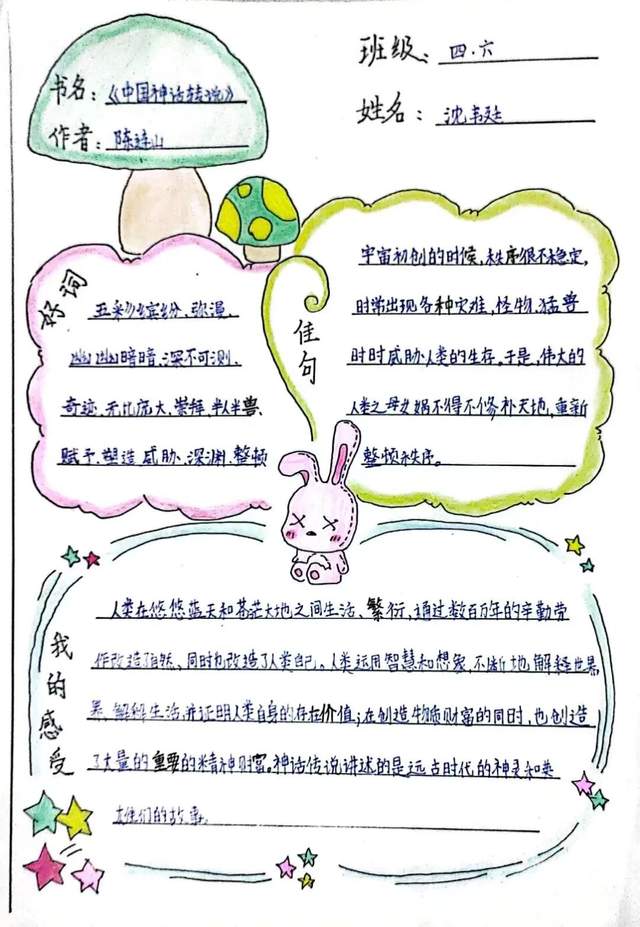 班级：四.六
书名：《中国神话转说》
姓名：沈韦廷
作者：陈连山
好词
五彩缤纷、弥漫、
幽幽暗暗、深不可测、
奇迹、无比庞大、崇拜、半人半兽、
赋予、塑造、威胁、深渊、整顿
佳句
宇宙初创的时候，秩序很不稳定，
时常出现各种灾难，怪物、猛兽
时时威胁人类的生存。于是，伟大的
人类之母女娲不得不修补天地，重新
整顿秩序。
我的感受
人类在悠悠蓝天和苍茫大地之间生活、繁衍，通过数百万年的辛勤劳
作改造了自然、同时也改造了人类自己。人类运用智慧和想象，不断地解释世界
界、解释生活，并证明人类自身的存在价值；在创造物质财富的同时，也创造
了大量的重要的精神财富。神话传说讲述的是远古时代的神灵和英
雄们的故事。